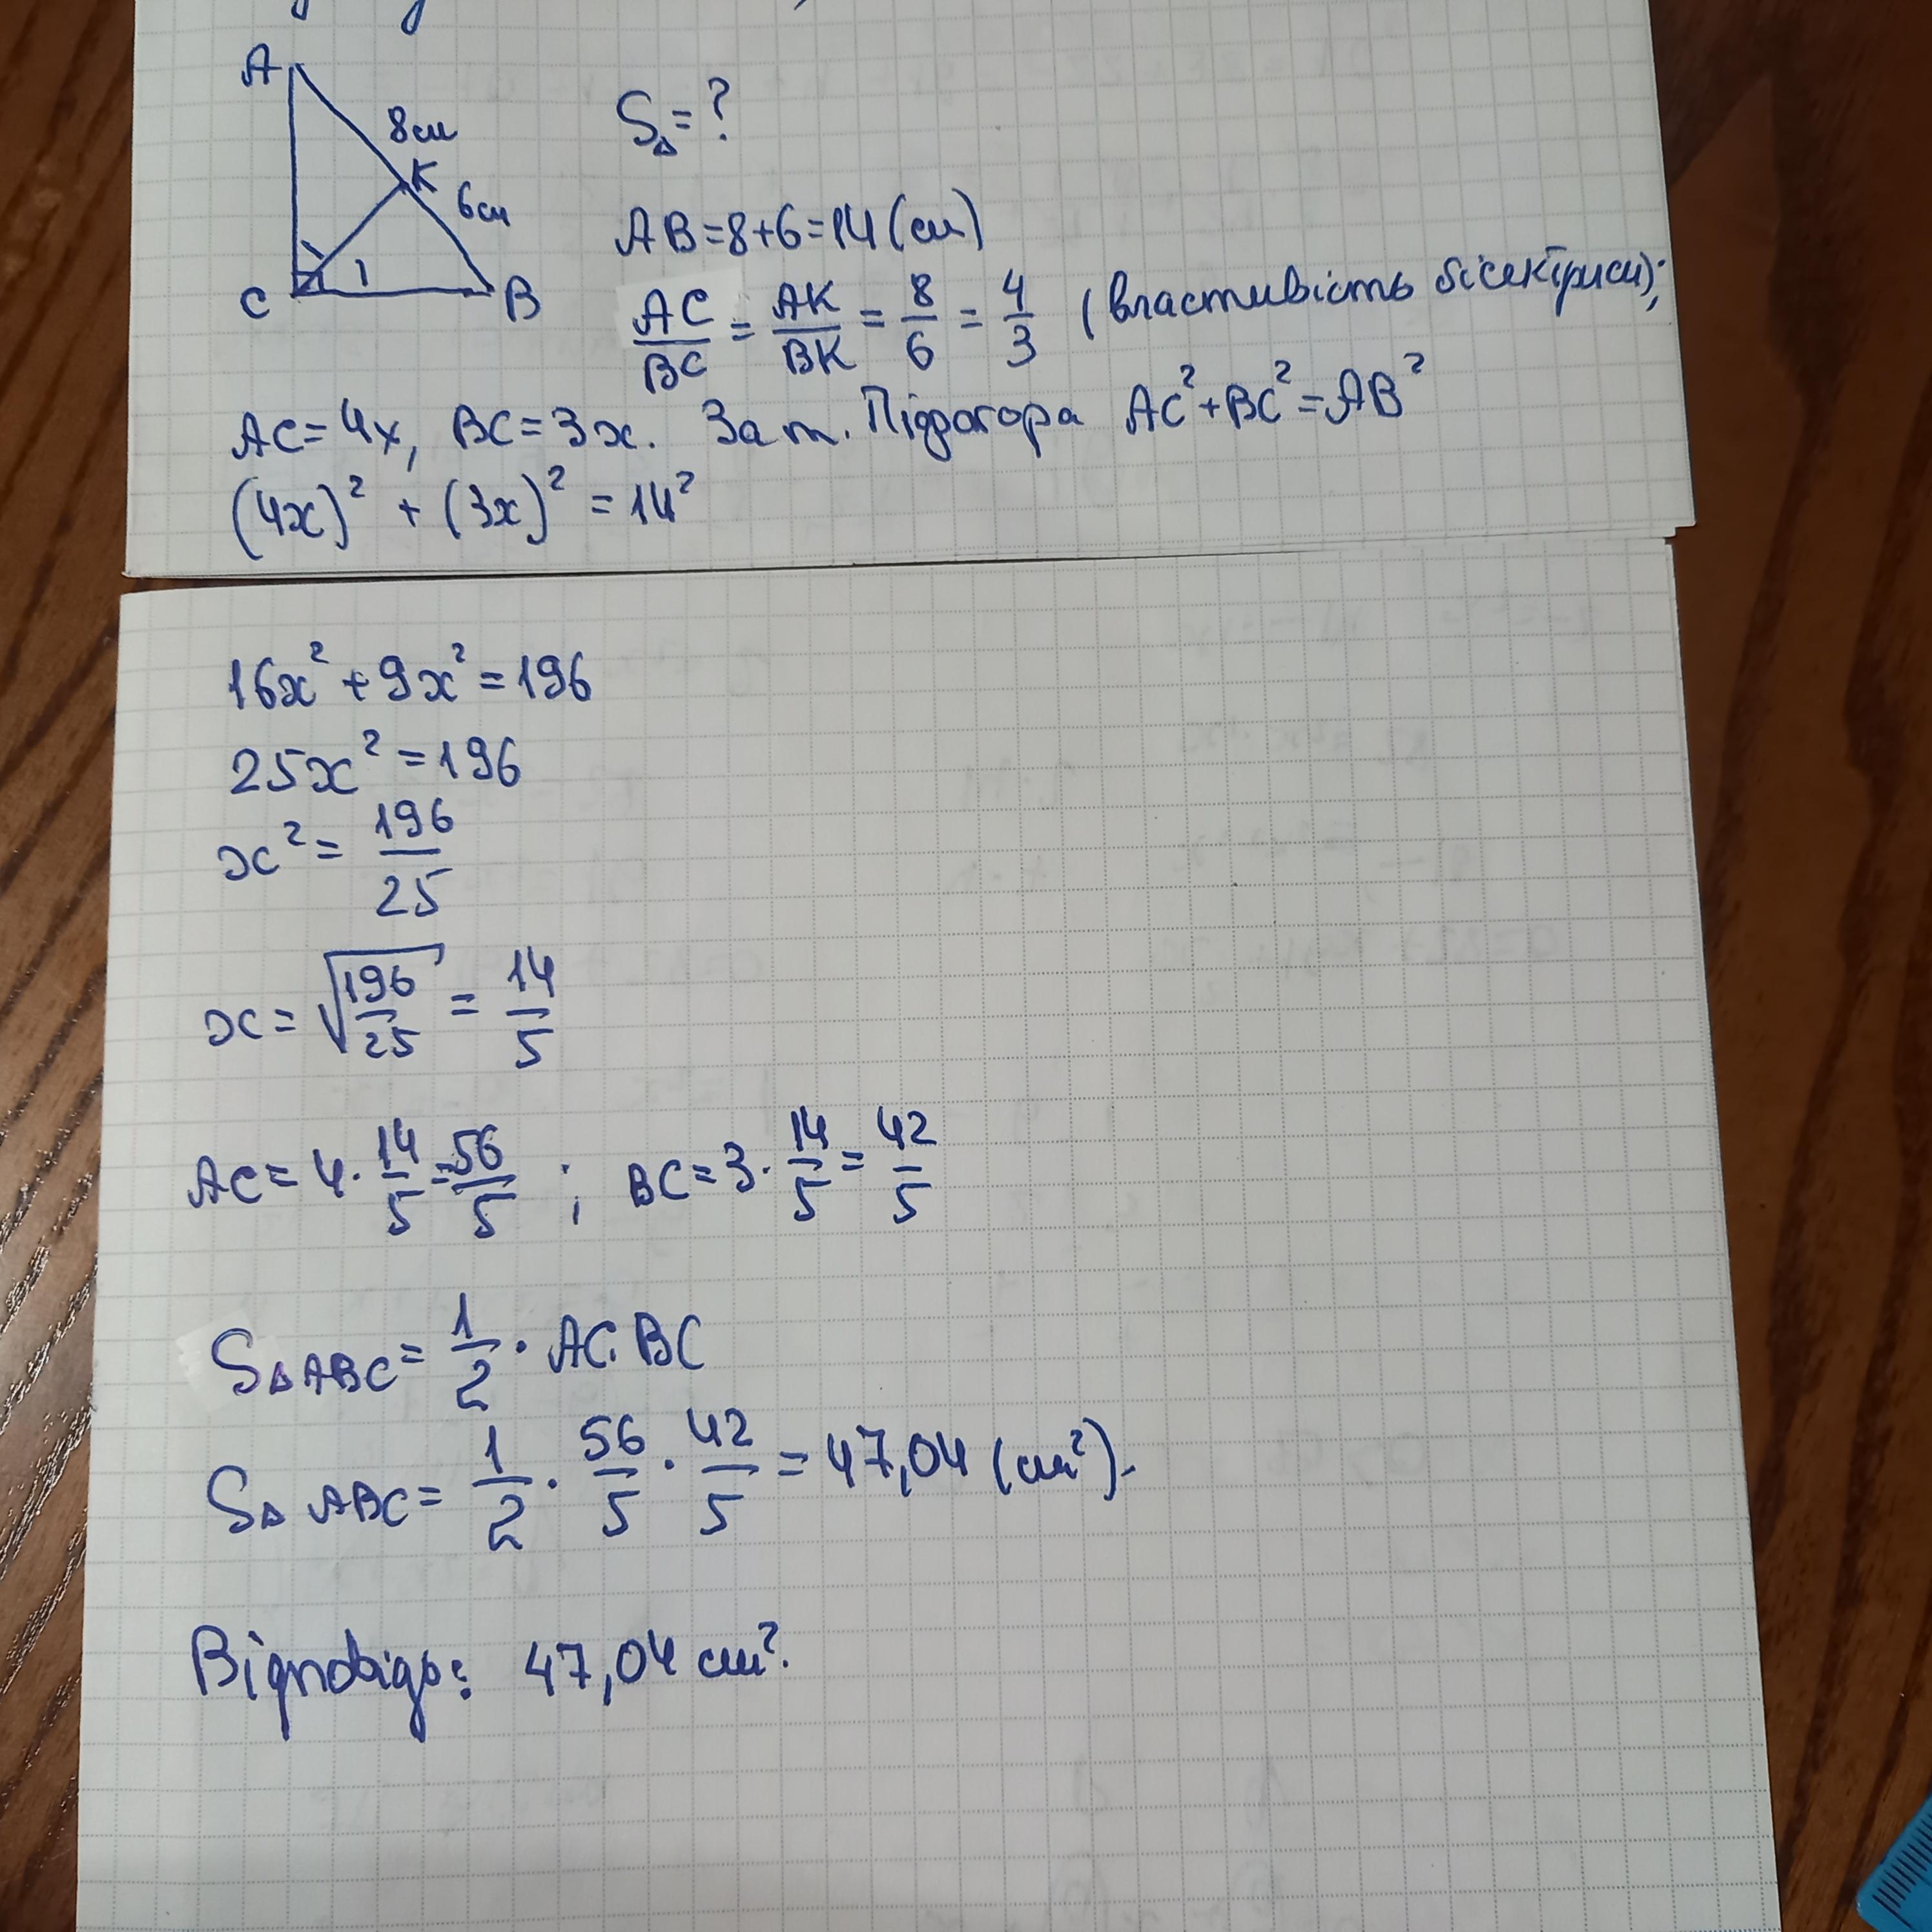 A
8см
K
6см
C
B
S△=?
AB=8+6=14(см)
AC/BC = AK/BK = 8/6 = 4/3 (властивість бісектриси);
AC=4x, BC=3x. За т. Підрогора AC²+BC²=AB²
(4x)² + (3x)² = 14²
16x²+9x²=196
25x²=196
x²= 196/25
x= √(196/25) = 14/5
AC= 4·14/5=56/5 ; BC=3·14/5=42/5
S△ABC= 1/2 · AC·BC
S△ABC= 1/2 · 56/5 · 42/5 = 47,04 (см²).
Відповідь: 47,04 см².